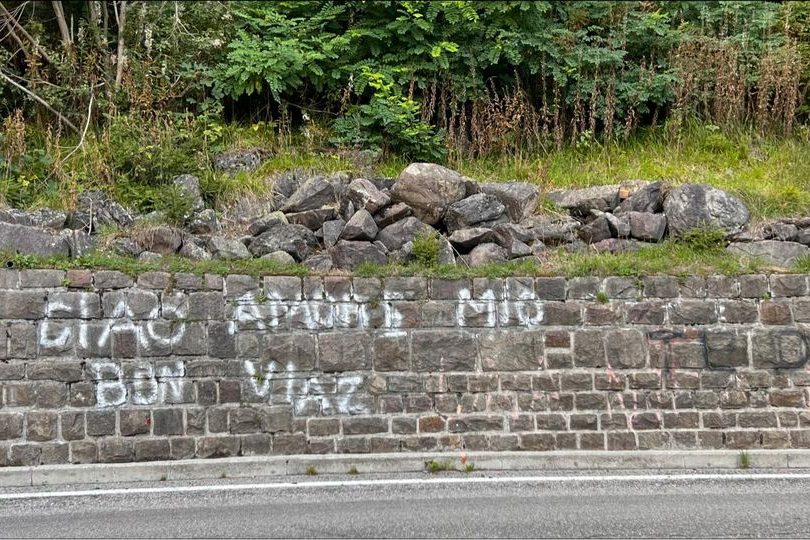 CIAO AMORE MIO
BON VIAZ